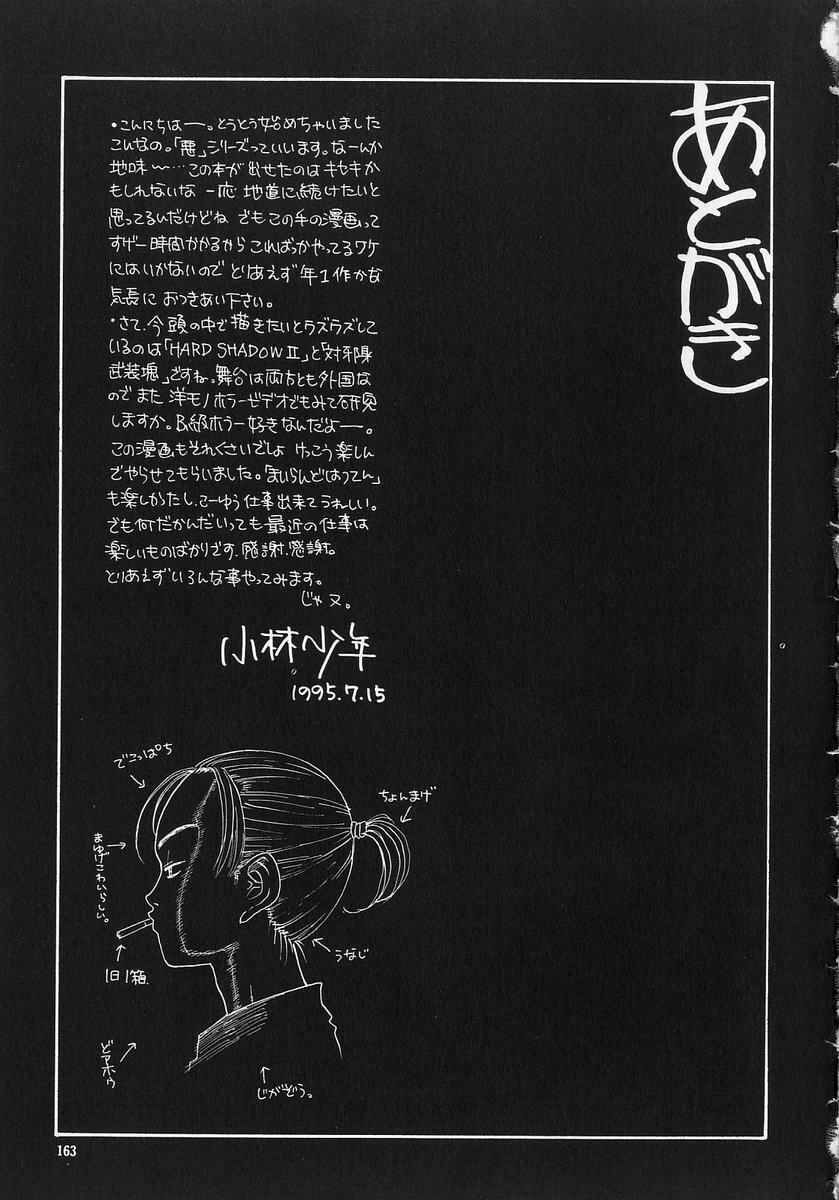 あとがき
・こんにちはー。とうとう始めちゃいました
こんなの。「悪」シリーズっていいます。なーんか
地味～…この本が出せたのはキセキか
もしれないな 一応 地道に続けたいと
思ってるんだけどね でもこの手の漫画って
すげー時間かかるから こればっかやってるワケ
にはいかないので とりあえず年1作かな
気長に おつきあい下さい。
・さて、今頭の中で描きたいとウズウズして
いるのは「HARD SHADOW II」と「対邪隊
武装堀」ですね。舞台は両方とも外国な
のでまた 洋モノホラービデオでもみて研究
しますか。B級ホラー好きなんだよー。
この漫画もそれくさいでしょ けっこう楽しん
でやらせてもらいました。「まいらんどはってん」
も楽しかったし、こーゆう仕事出来てうれしい。
でも何だかんだいっても最近の仕事は
楽しいものばかりです、感謝、感謝。
とりあえずいろんな事やってみます。
じゃ又。
小林少年
1995.7.15
でこっぱち
ちょんまげ
まゆげこわいらしい。
うなじ
1日1箱
どアホゥ
じがぞう。
163